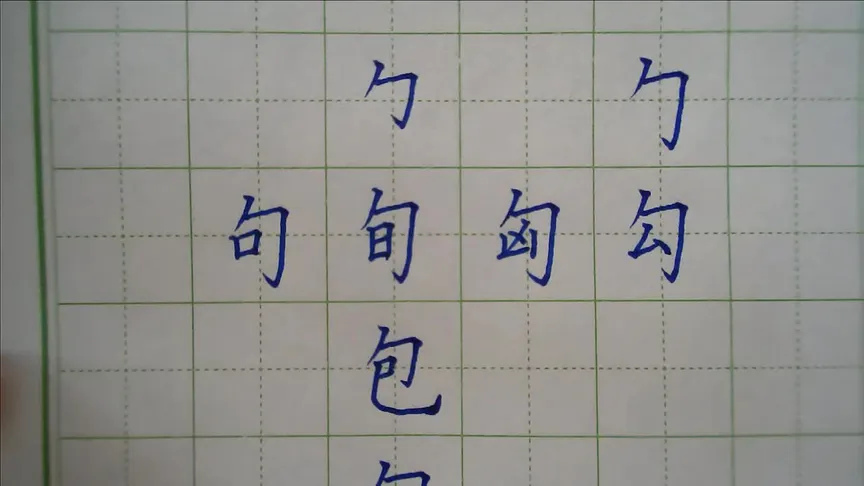 勹 勹
句 旬 匈 勾
包